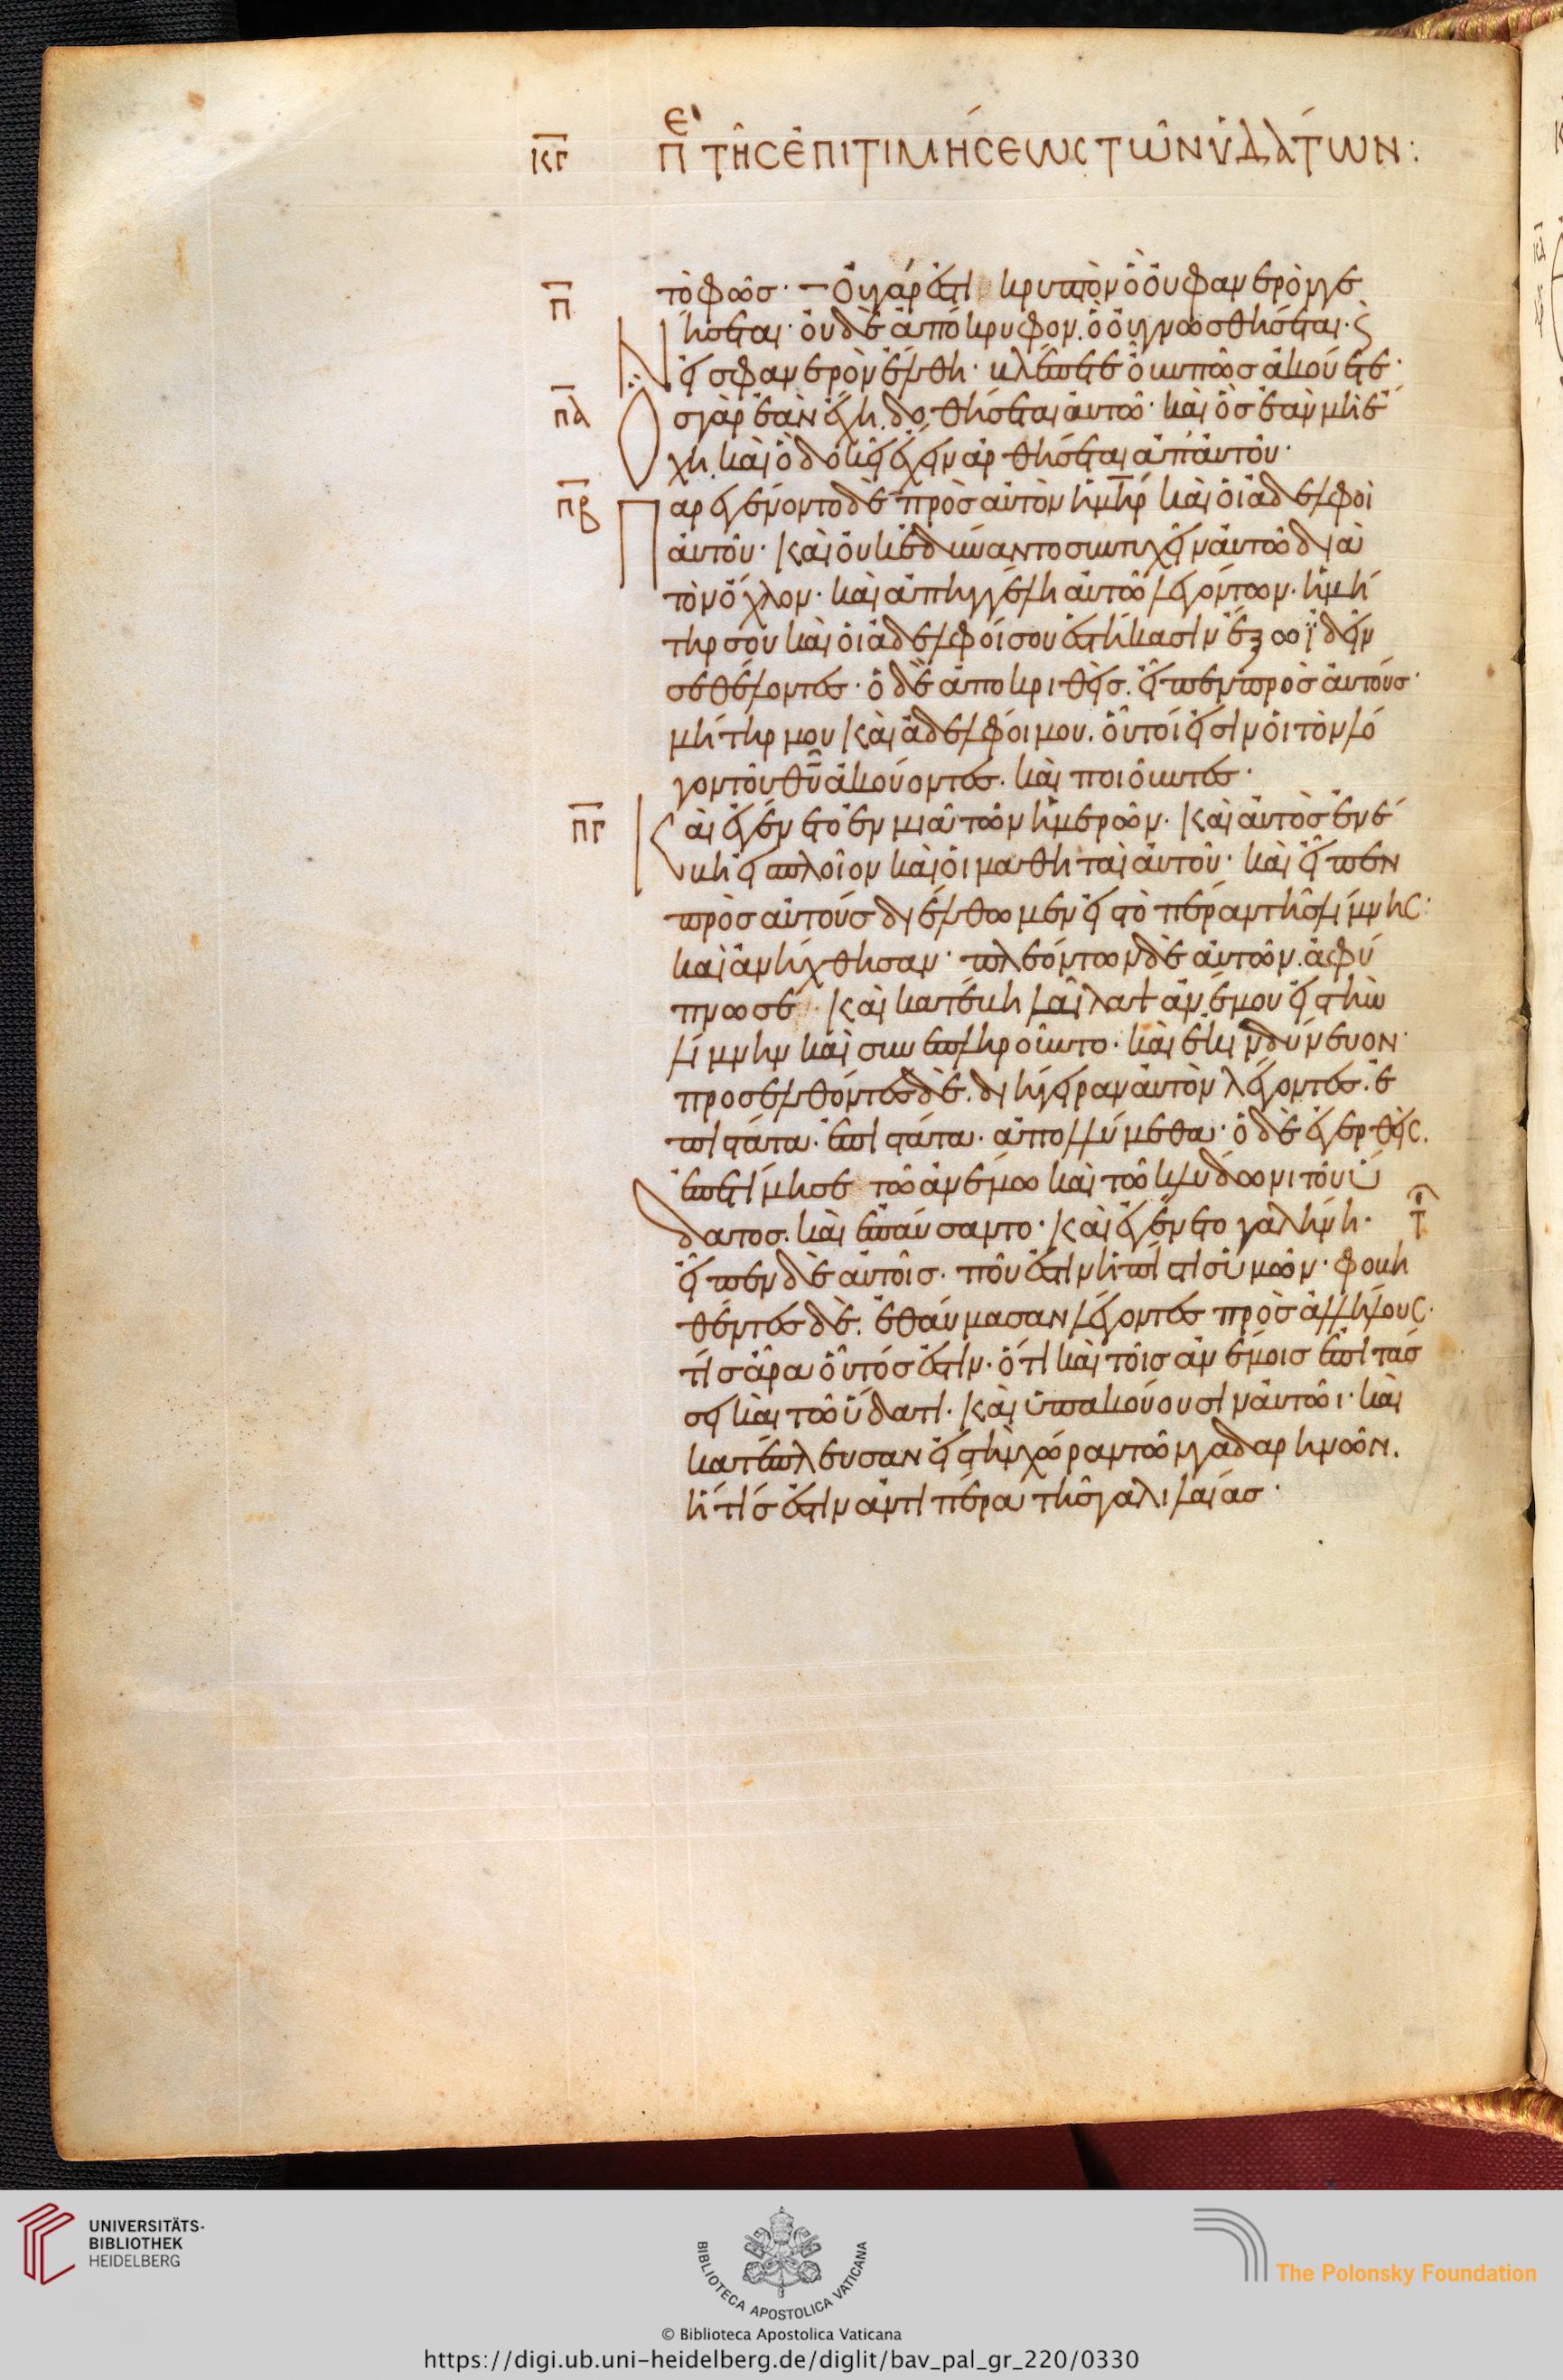 κγ πε τῆς ἐπιτιμήσεως τῶν ὑδάτων:
π τὸ φῶσ· οὐ γάρ ἐστι κρυπτὸν ὃ οὐ φανερὸν γε
νήσεται· οὐδὲ ἀπόκρυφον. ὃ οὐ γνωσθήσεται· ϗ
εἰσ φανερὸν ἔλθη· βλέπετε οὖν πῶσ ἀκούετε·
πα ὃσ γὰρ ἐὰν ἔχη. δοθήσεται αὐτῶ· καὶ ὃσ ἐὰν μὴ ἔ
χη. καὶ ὃ δοκεῖ ἔχειν ἀρθήσεται ἀπ' αὐτοῦ·
πβ παρεγένοντο δὲ πρὸσ αὐτὸν ἡ μηρ καὶ οἱ ἀδελφοὶ
αὐτοῦ· καὶ οὐκ ἐδύναντο συντυχεῖν αὐτῶ διὰ
τὸν ὄχλον· καὶ ἀπηγγέλη αὐτῶ λεγόντων· ἡ μή
τηρ σου καὶ οἱ ἀδελφοί σου ἑστήκασιν ἔξω ἰδεῖν
σε θέλοντεσ· ὁ δὲ ἀποκριθεὶσ. εἶπεν πρὸσ αὐτούσ·
μήτηρ μου καὶ ἀδελφόι μου. οὗτοί εἰσιν οἱ τὸν λό
γον τοῦ θυ ἀκούοντεσ. καὶ ποιοῦντεσ·
πγ καὶ ἐγένετο ἐν μιᾶ τῶν ἡμερῶν· καὶ αὐτὸσ ἐνέ
βη εἰσ πλοῖον καὶ οἱ μαθηταὶ αὐτοῦ· καὶ εἶπεν
πρὸσ αὐτούσ διέλθωμεν εἰσ τὸ πέραν τῆσ λίμνησ·
καὶ ἀνήχθησαν· πλεόντων δὲ αὐτῶν. ἀφύ
πνωσε· καὶ κατέβη λαῖλαψ ἀνέμου εἰσ τὴν
λίμνην καὶ συνεπληροῦντο· καὶ ἐκινδύνευον·
προσελθόντεσ δὲ. διήγειραν αὐτὸν λέγοντεσ. ἐ
πιστάτα· ἐπιστάτα· ἀπολλύμεθα· ὁ δὲ ἐγερθεὶσ.
ἐπετίμησε τῶ ἀνέμω καὶ τῶ κλύδωνι τοῦ ὕ
δατοσ. καὶ ἐπαύσαντο· καὶ ἐγένετο γαλήνη· τ
εἶπεν δὲ αὐτοῖσ. ποῦ ἐστιν ἡ πίστισ ὑμῶν· φοβη
θέντεσ δὲ. ἐθαύμασαν λέγοντεσ πρὸσ ἀλλήλουσ·
τίσ ἄρα οὗτόσ ἐστιν. ὅτι καὶ τοῖσ ἀνέμοισ ἐπιτάσ
σει καὶ τῶ ὕδατι. καὶ ὑπακούουσιν αὐτῶι· καὶ
κατέπλευσαν εἰσ τὴν χώραν τῶν γαδαρηνῶν.
ἥτίσ ἐστιν ἀντιπέρα τῆσ γαλιλαίασ·
UNIVERSITÄTS-
BIBLIOTHEK
HEIDELBERG
BIBLIOTECA APOSTOLICA VATICANA
The Polonsky Foundation
© Biblioteca Apostolica Vaticana
https://digi.ub.uni-heidelberg.de/diglit/bav_pal_gr_220/0330